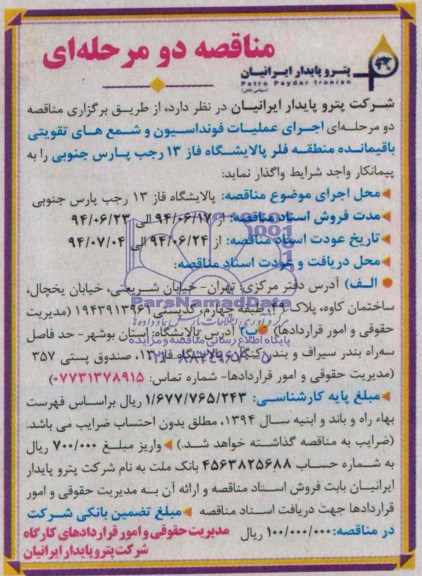 مناقصه دو مرحله‌ای
پترو پایدار ایرانیان
Petro Paydar Iranian
(سهامی خاص)
شرکت پترو پایدار ایرانیان در نظر دارد، از طریق برگزاری مناقصه
دو مرحله‌ای اجرای عملیات فونداسیون و شمع های تقویتی
باقیمانده منطقه فلر پالایشگاه فاز ۱۳ رجب پارس جنوبی را به
پیمانکار واجد شرایط واگذار نماید:
محل اجرای موضوع مناقصه: پالایشگاه فاز ۱۳ رجب پارس جنوبی
مدت فروش اسناد مناقصه: از ۹۴/۰۶/۱۷ الی ۹۴/۰۶/۲۳
تاریخ عودت اسناد مناقصه: از ۹۴/۰۶/۲۴ الی ۹۴/۰۷/۰۴
محل دریافت و عودت اسناد مناقصه:
الف) آدرس دفتر مرکزی: تهران- خیابان شریعتی، خیابان یخچال،
ساختمان کاوه، پلاک طبقه چهارم، کدپستی ۱۹۴۳۹۱۳۹۶۱ (مدیریت
حقوقی و امور قراردادها) ب) آدرس پالایشگاه: استان بوشهر- حد فاصل
سه‌راه بندر سیراف و بندر کنگان، پالایشگاه فاز ۱۳، صندوق پستی ۳۵۷
(مدیریت حقوقی و امور قراردادها- شماره تماس: ۰۷۷۳۱۳۷۸۹۱۵)
مبلغ پایه کارشناسی: ۱/۶۷۷/۷۶۵/۲۴۳ ریال براساس فهرست
بهاء راه و باند و ابنیه سال ۱۳۹۴، مطلق بدون احتساب ضرایب می باشد.
(ضرایب به مناقصه گذاشته خواهد شد.) واریز مبلغ ۷۰۰/۰۰۰ ریال
به شماره حساب ۴۵۶۳۸۲۵۶۸۸ بانک ملت به نام شرکت پترو پایدار
ایرانیان بابت فروش اسناد مناقصه و ارائه آن بـه مدیریت حقوقی و امور
قراردادها جهت دریافت اسناد مناقصه مبلغ تضمین بانکی شرکت
در مناقصه: ۱۰۰/۰۰۰/۰۰۰ ریال
مدیریت حقوقی و امور قراردادهای کارگاه
شرکت پترو پایدار ایرانیان
ParsNamadData
پایگاه اطلاع رسانی مناقصه و مزایده